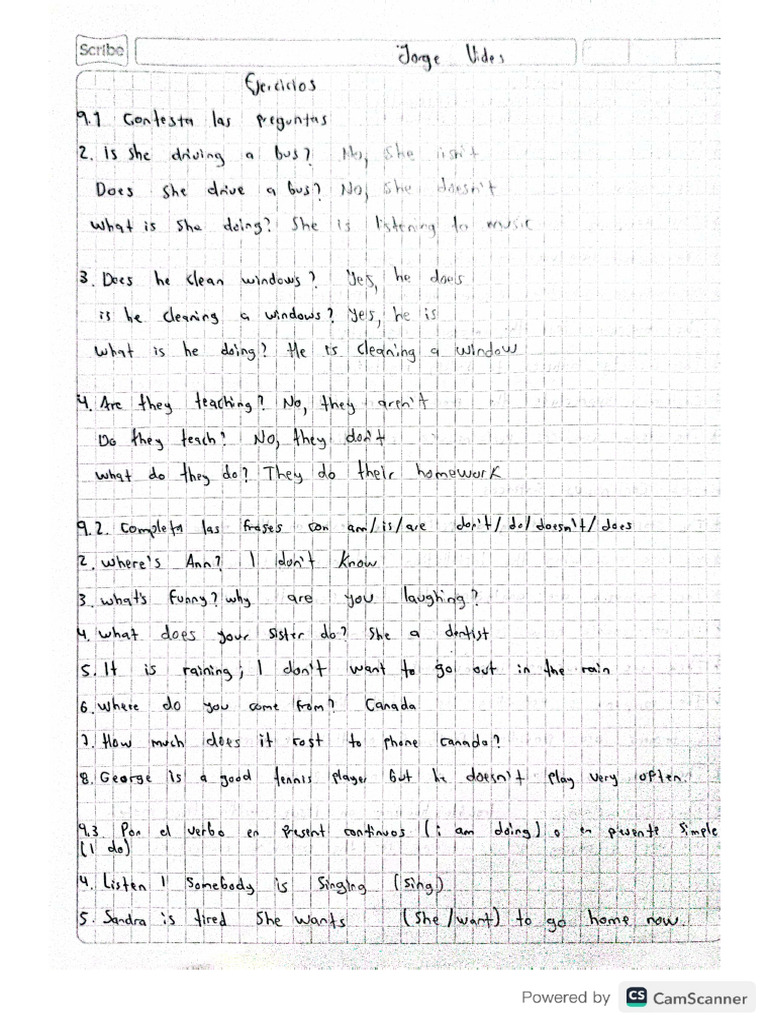 Scribe
Jorge Vides
Ejercicios
9.1 Contesta las preguntas
2. is she driving a bus? No, she isn't
Does she drive a bus? No, she doesn't
what is she doing? She is listening to music
3. Does he clean windows? Yes, he does
is he cleaning a windows? yes, he is
what is he doing? He is cleaning a window
4. Are they teaching? No, they aren't
Do they teach? No, they don't
what do they do? They do their homework
9.2. Completa las frases con am/is/are don't/do/doesn't/does
2. where's Ann? I don't know
3. what's funny? why are you laughing?
4. what does your sister do? she a dentist
5. It is raining; I don't want to go out in the rain
6. where do you come from? Canada
7. How much does it cost to phone canada?
8. George is a good tennis player but he doesn't play very often.
9.3. Pon el verbo en present continuos (i am doing) o en presente simple
(I do)
4. Listen ! Somebody is singing (sing)
5. Sandra is tired She wants (she/want) to go home now.
Powered by CS CamScanner